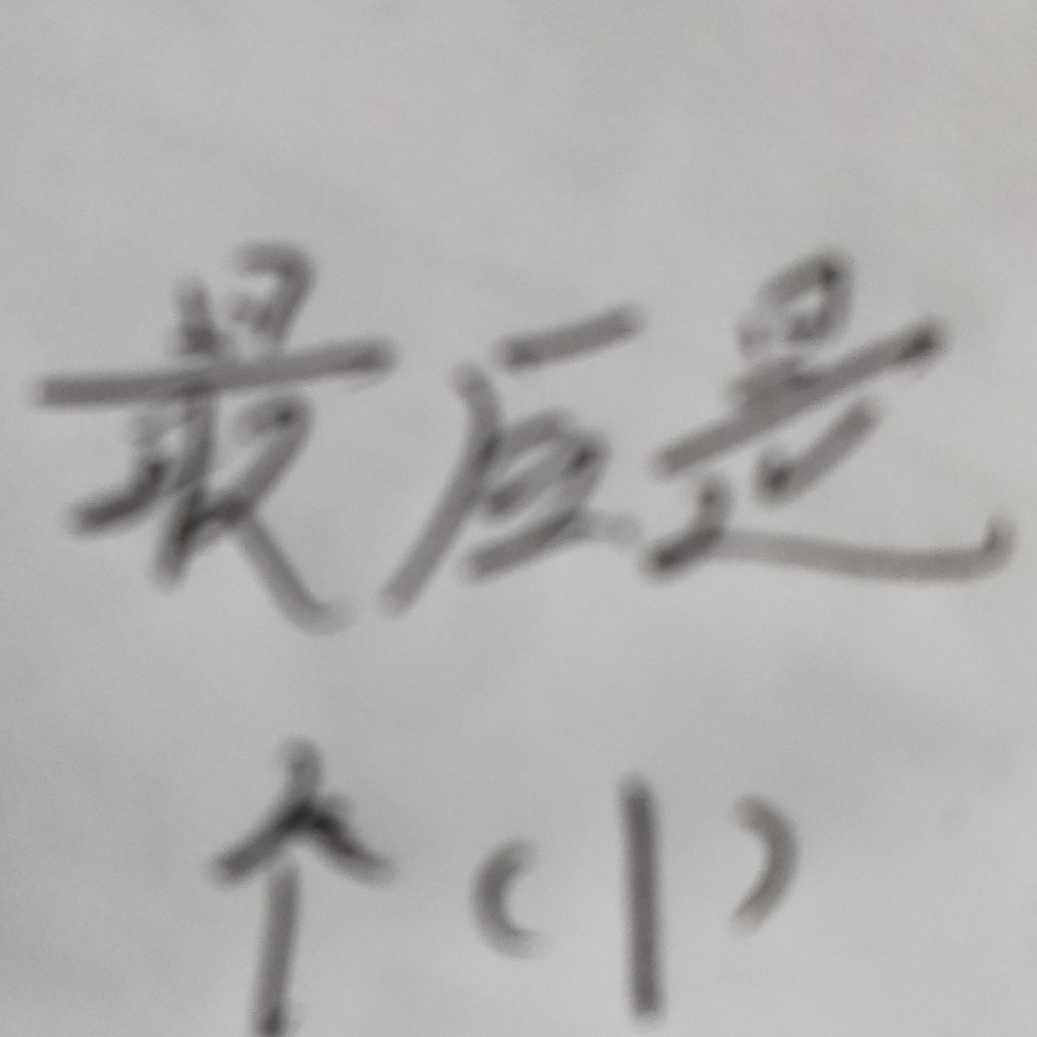 最后是
个(1)